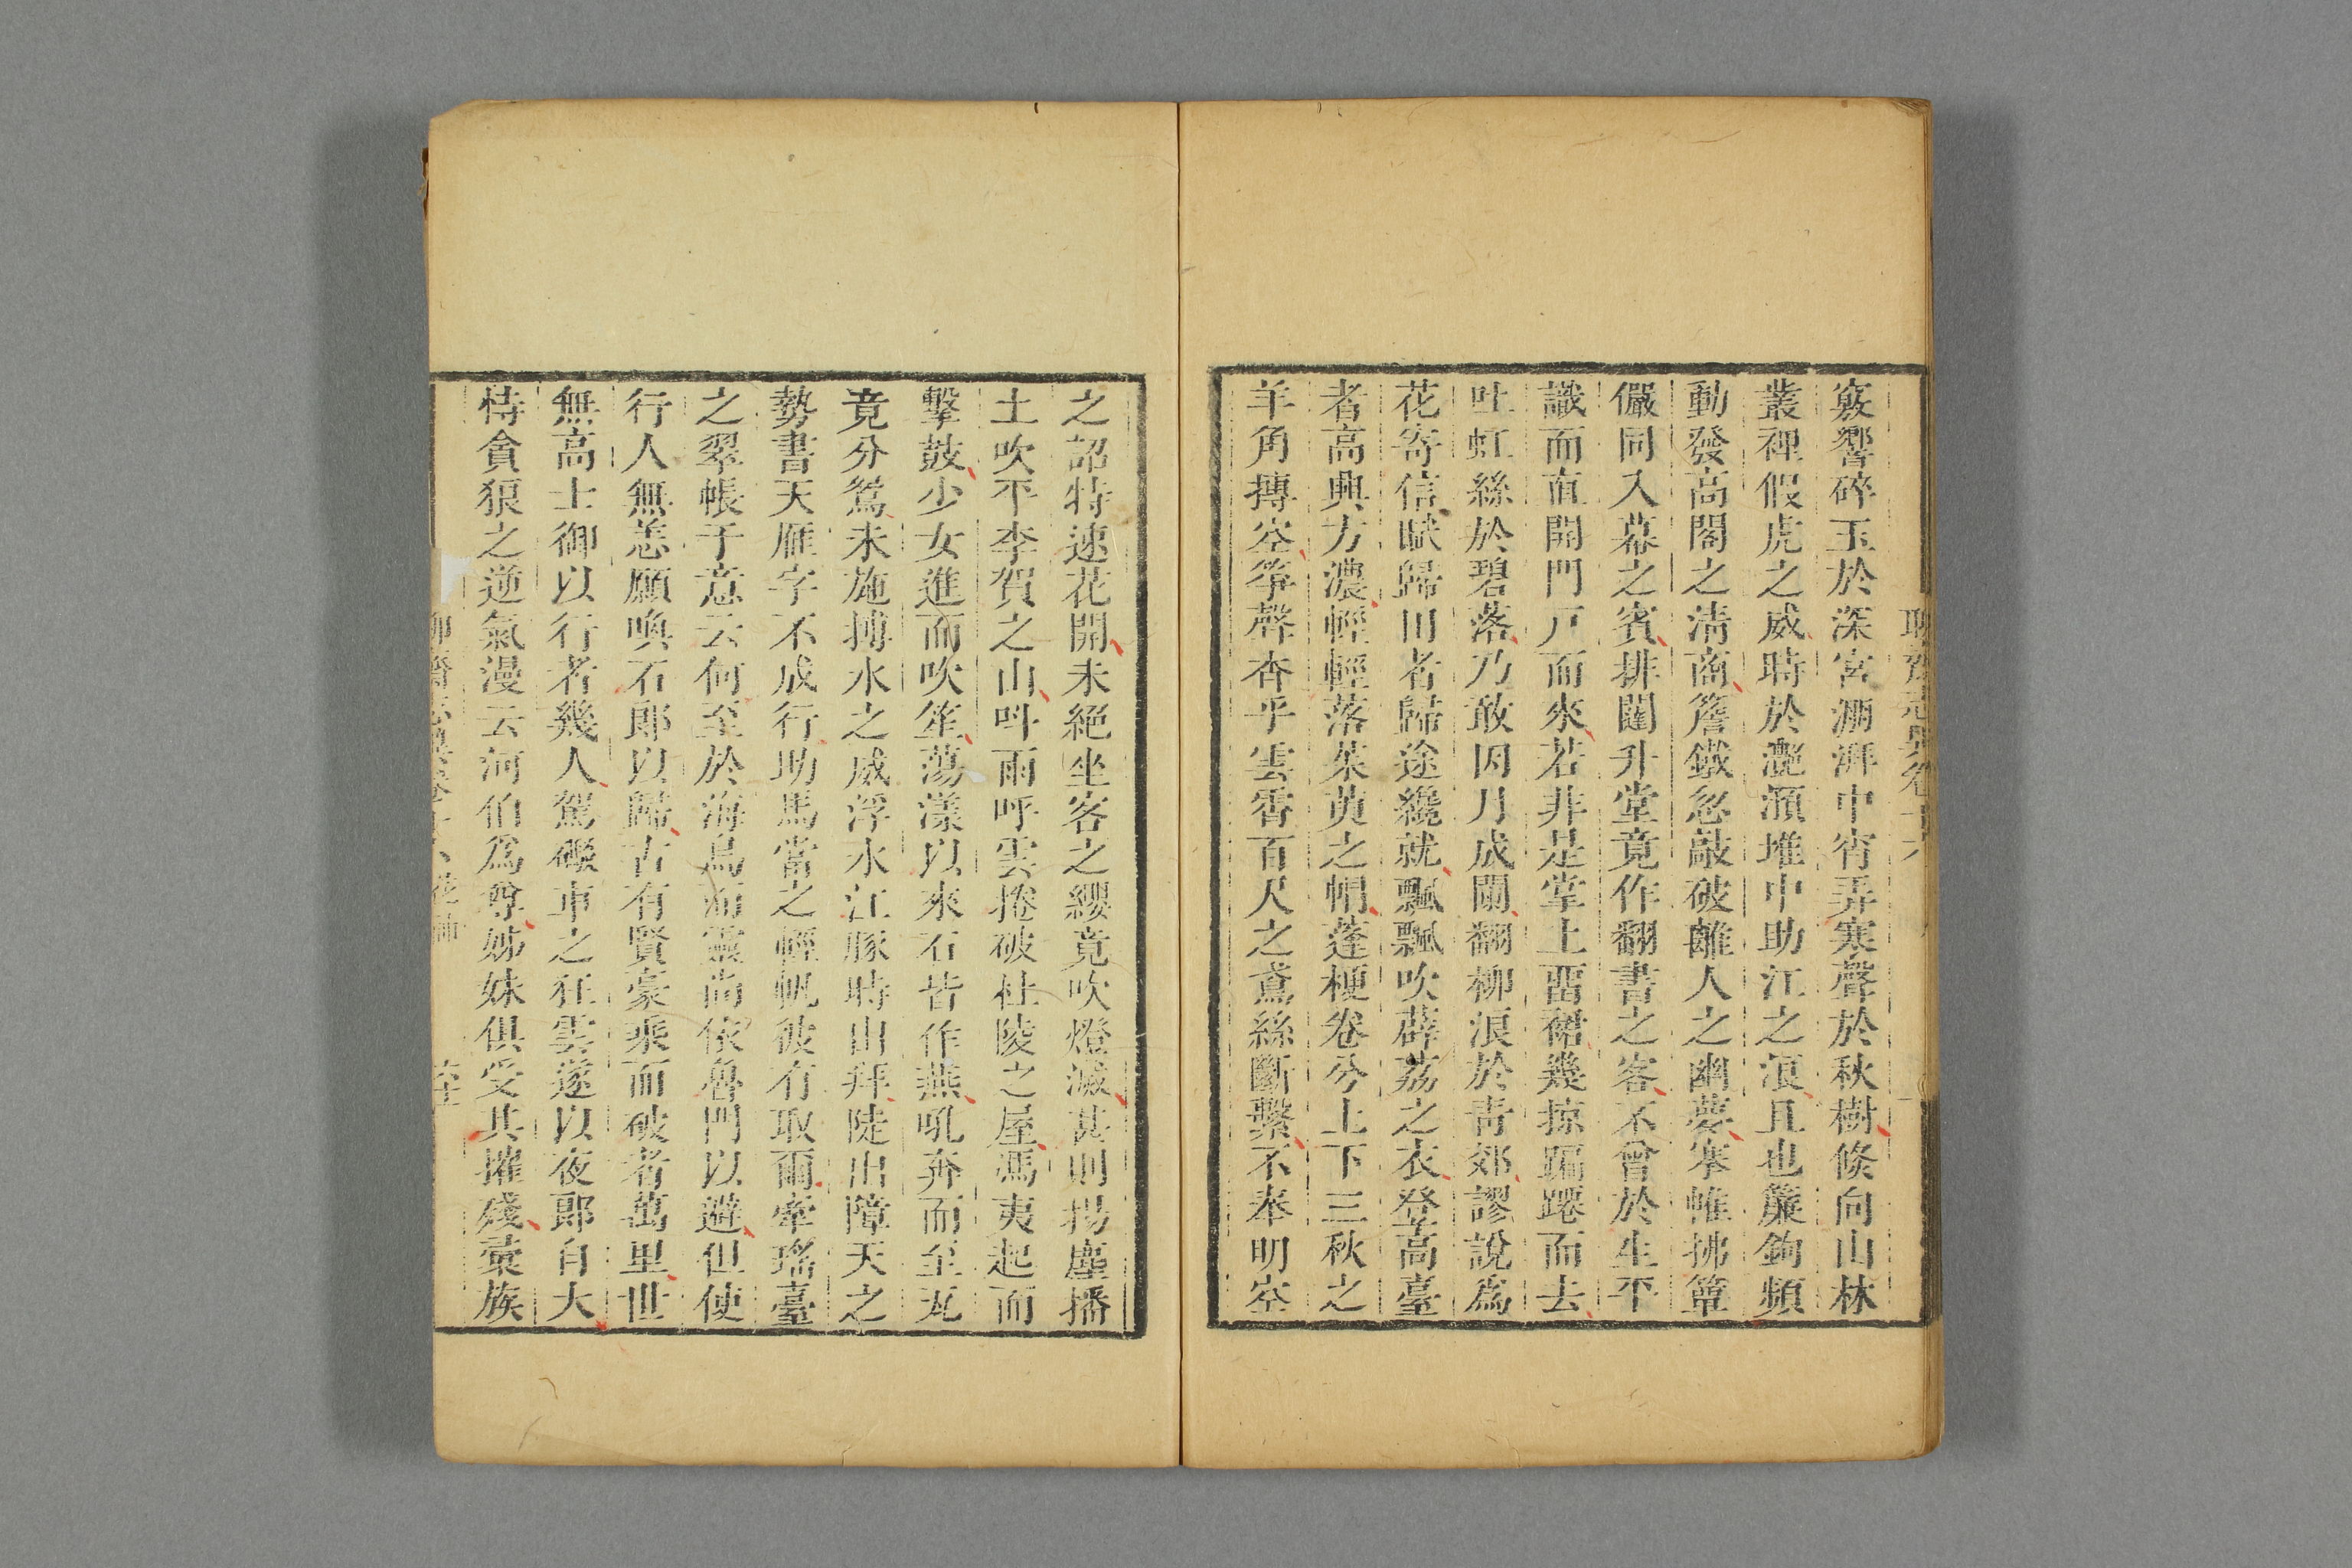 聊齋志異卷十六
竅響碎玉於深宮澎湃中宵弄寒聲於秋樹倐向山林
叢裡假虎之威時於灔澦堆中助江之浪且也簾鉤頻
動發高閣之淸商簷鐵忽敲破離人之幽夢搴帷拂簟
儼同入幕之賓排闥升堂竟作翻書之客不曾於生平
識而直開門戸而來若非是掌上畱裙幾掠蹁躚而去
吐虹絲於碧落乃敢因月成闌翻柳浪於靑郊謬說爲
花寄信賦歸田者歸途纔就飄飄吹薜荔之衣登高臺
者高興方濃輕輕落茱萸之帽蓬梗卷兮上下三秋之
羊角摶空箏聲杳乎雲霄百尺之鳶絲斷繫不奉明空
之詔特速花開未絕坐客之纓竟吹燈滅甚則揚塵播
土吹平李賀之山呌雨呼雲捲破杜陵之屋馮夷起而
擊鼓少女進而吹笙蕩漾以來石皆作燕吼奔而至瓦
竟分鴛未施摶水之威浮水江豚時出拜陡出障天之
勢書天雁字不成行助馬當之輕帆彼有取爾牽瑤臺
之翠帳于意云何至於海鳥有靈尚依魯門以避但使
行人無恙願喚石郎以歸古有賢豪乘而破者萬里世
無高士御以行者幾人駕礮車之狂雲遂以夜郎自大
恃貪狼之逆氣漫云河伯爲尊姊妹俱受其摧殘彙族
聊齋志異卷十六 花神